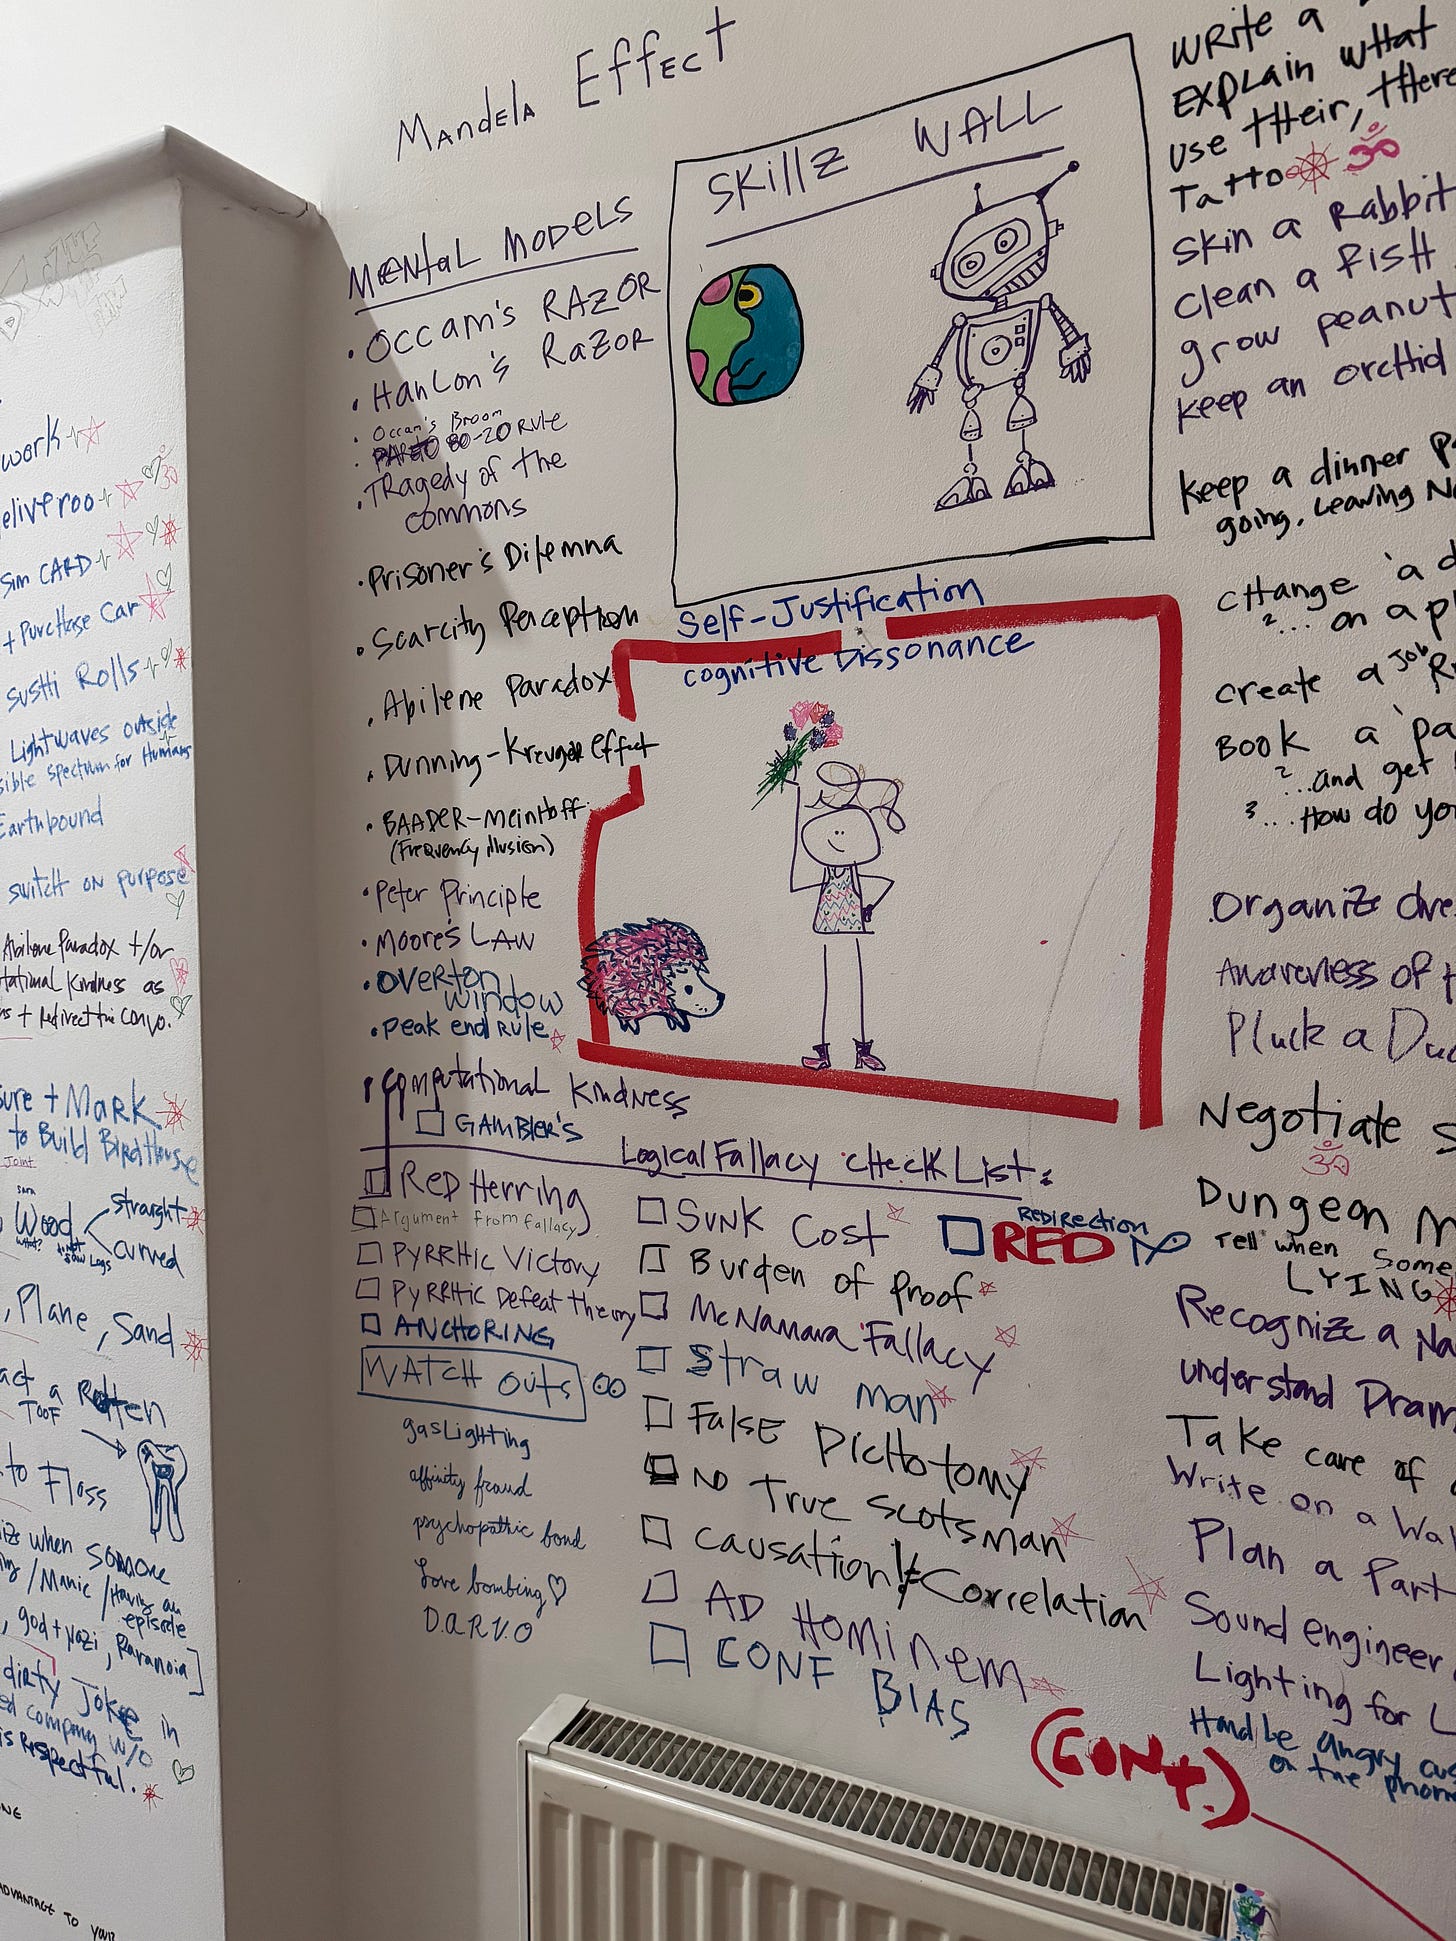 Mandela Effect
SKillz WALL
MENtaL MODELS
• OCCam's RAZOR
• HanLon's RaZOR
• Occam's Broom
• PARETO 80-20 RULE
• TRagedy of the
commons
• Prisoner's Dilemna
• Scarcity Perception
• Abilene Paradox
• Dunning-Kreuger effect
• BAADER-Meinhoff
(Frequency illusion)
• Peter Principle
• Moore's LAW
• OVERTON
window
• Peak end RULE
• Computational Kindness
GAMBLER'S
Self-Justification
Cognitive Dissonance
Logical Fallacy CHECK LIST:
Red Herring
Argument from fallacy
PYRRHic Victory
PYRRHic Defeat Theory
ANCHORING
WATCH OUTS
gasLigHting
affinity fraud
psychopathic bond
Love bombing
D.a.R.V.O
SUNK COST
Burden of Proof
McNamara Fallacy
Straw man
False Dichotomy
No True Scotsman
Causation ≠ Correlation
AD Hominem
CONF BIAS
REDIRECTION
RED
(CONT.)
WRite a
EXPLAIN WHAT
USE tHEir, tHere
Tattoo
SKin a Rabbit
Clean a FisH
grow peanut
Keep an Orchid
Keep a dinner
going, Leaving
CHANGE a
2... on a
Create a Job
BOOK a
2 ...and get
3... How do you
Organize
Awareness of
Pluck a
Negotiate
Dungeon
Tell when
LYING
Recognize a
understand
Take care of
Write on a
Plan a Part
Sound engineer
Lighting for
Handle angry
on the phone
work
eliveroo
Sim CARD
+ PurcHase Car
SusHi RoLLs
Lightwaves outside
sible spectrum for Humans
Earthbound
switcH on purpose
Abilene Paradox +/or
tational Kindness as
+ Redirect the convo.
sure + Mark
to Build BirdHouse
Joint
Wood
straight
curved
, Plane, Sand
act a Rotten
TOOF
to Floss
ize when someone
/Manic/Having an
episode
, god + Nazi, Paranoia]
dirty JOKE in
ed company w/o
is Respectful.
ADVANTAGE TO YOUR